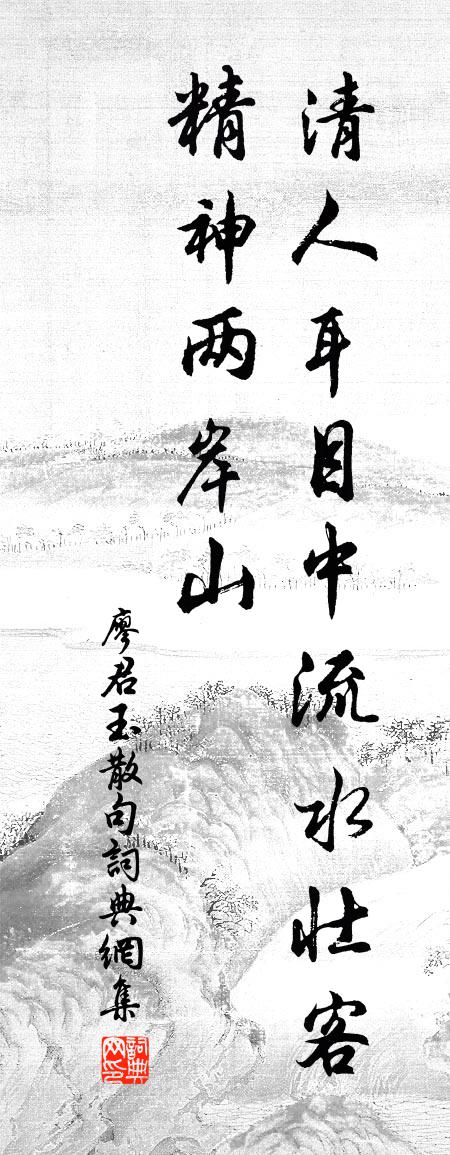 清人耳目中流水壮客
精神两岸山
廖君玉散句詞典網集
詞典网印